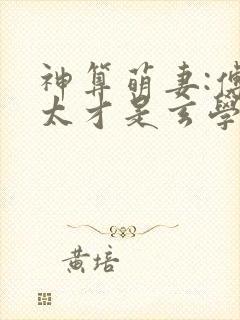 神算萌妻:傅
太才是玄學
黄培